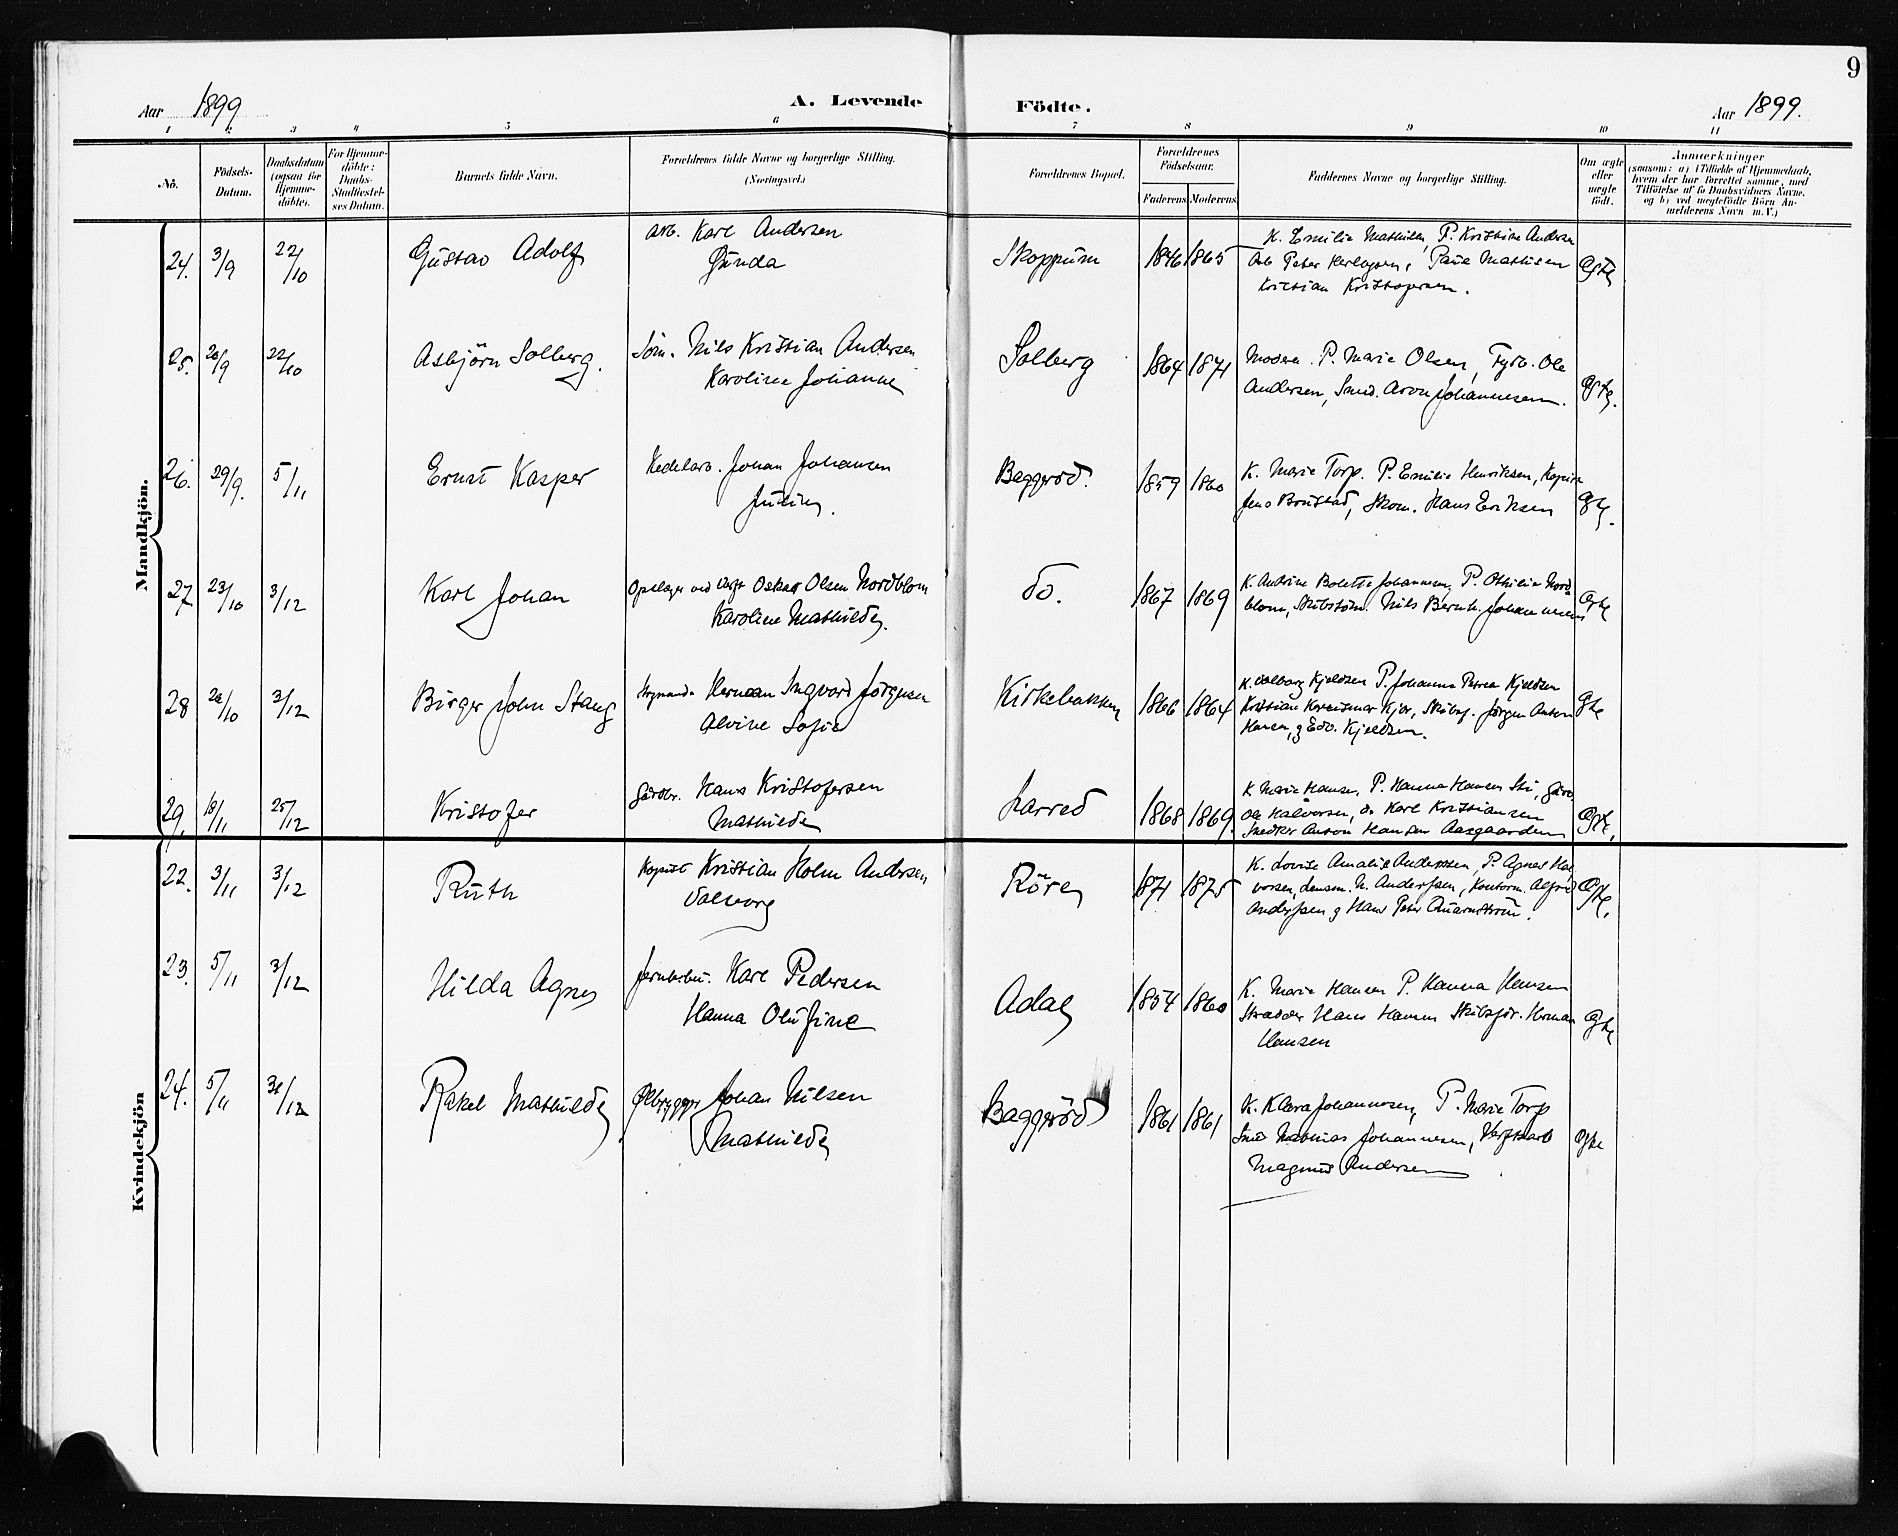 9
Aar 1899 A. Levende Födte. Aar 1899.
1 2 3 4 5 6 7 8 9 10 11
No.
Födsels-
Datum.
Daabsdatum
(ogsaa for
Hjemme-
döbte).
For Hjemme-
döbte:
Daabs-
Stadfæstel-
ses Datum.
Barnets fulde Navn.
Forældrenes fulde Navne og borgerlige Stilling.
(Næringsvei.)
Forældrenes Bopæl.
Forældrenes
Födselsaar.
Faderens Moderens
Faddernes Navne og borgerlige Stilling.
Om ægte
eller
uægte
födt.
Anmærkninger
(saasom: a) i Tilfælde af Hjemmedaab,
hvem der har forrettet samme, med
Tilföielse af to Daabsvidners Navne.
og b) ved uegtefödte Börn An-
melderens Navn m. V.)
Mandkjön.
24. 3/9 22/10 Gustav Adolf
Arb. Karl Andersen
Gunda
Skoppum 1846 1865
K. Emilie Mathisen, P. Kristine Andersen
Arb Peter Paul Mathisen
Kristian Kristofersen.
Ægte
25. 20/9 22/10 Asbjörn Solberg.
Söm. Nils Kristian Andersen
Karoline Johanne
Solberg 1864 1871
Moderen. P. Marie Olsen, Fyrb. Ole
Andersen, Smed. Aron Johannesen.
Ægte.
26. 29/9. 5/11 Ernst Kasper
Kedelarb. Johan Johansen
Juline.
Baggeröd. 1859 1860
K. Marie Torp. P. Emilie Henriksen, Kopist
Jens Brustad, Skom. Hans Eriksen
Ægte.
27. 23/10 3/12 Karl Johan
Opslager ved Værft Oskar Olsen Nordblom
Karoline Mathilde.
do. 1867 1869
K. Andrine Bolette Johannesen, P. Othilie Nord-
blom, Skibstöm. Nils Bernh. Johannesen
Ægte
28 3/12 Birger John Stang
Styrmand Herman Ingvard Jörgensen
Alvine Sofie
Kirkebakken 1866 1864
K. Valborg Kjeldsen P. Johanne Petrea Kjeldsen
Kristian Kjær, Skibsf. Jörgen Anton
Hansen, og Edv. Kjeldsen.
Ægte
29. 18/11 25/12 Kristofer
Gårdbr. Hans Kristofersen
Mathilde
Larred 1868 1869.
K Marie Hansen, P. Hanna Hansen Sti, Gårdb.
Ole Halvorsen, do Karl Kristiansen
Snedker Anton Hansen Aasgaarden
Ægte.
Kvindekjön
22. 3/11 3/12 Ruth
Kopist Kristian Holm Andersen
Valborg
Röre 1871 1875
K. Lovise Amalie Anderssen, P. Agnes Hal-
vorsen, Lensm. N. Anderssen, Kontorm. Alfred
Anderssen og Hans Peter Quarnström.
Ægte.
23. 5/11 3/12 Hilda Agnes
Jernarbei. Karl Pedersen
Hanna Olufine
Adal 1854 1860
K. Marie Hansen P. Hanna Hansen
Skrædder Hans Hansen Skibsför. Herman
Hansen
Ægte
24. 5/11 31/12 Rakel Mathilde
Ølbrygger Johan Nilsen
Mathilde
Baggeröd 1861 1861
K. Klara Johannesen, P. Marie Torp
Smed Mathias Johannesen, Værftsarb
Magnus Andersen
Ægte